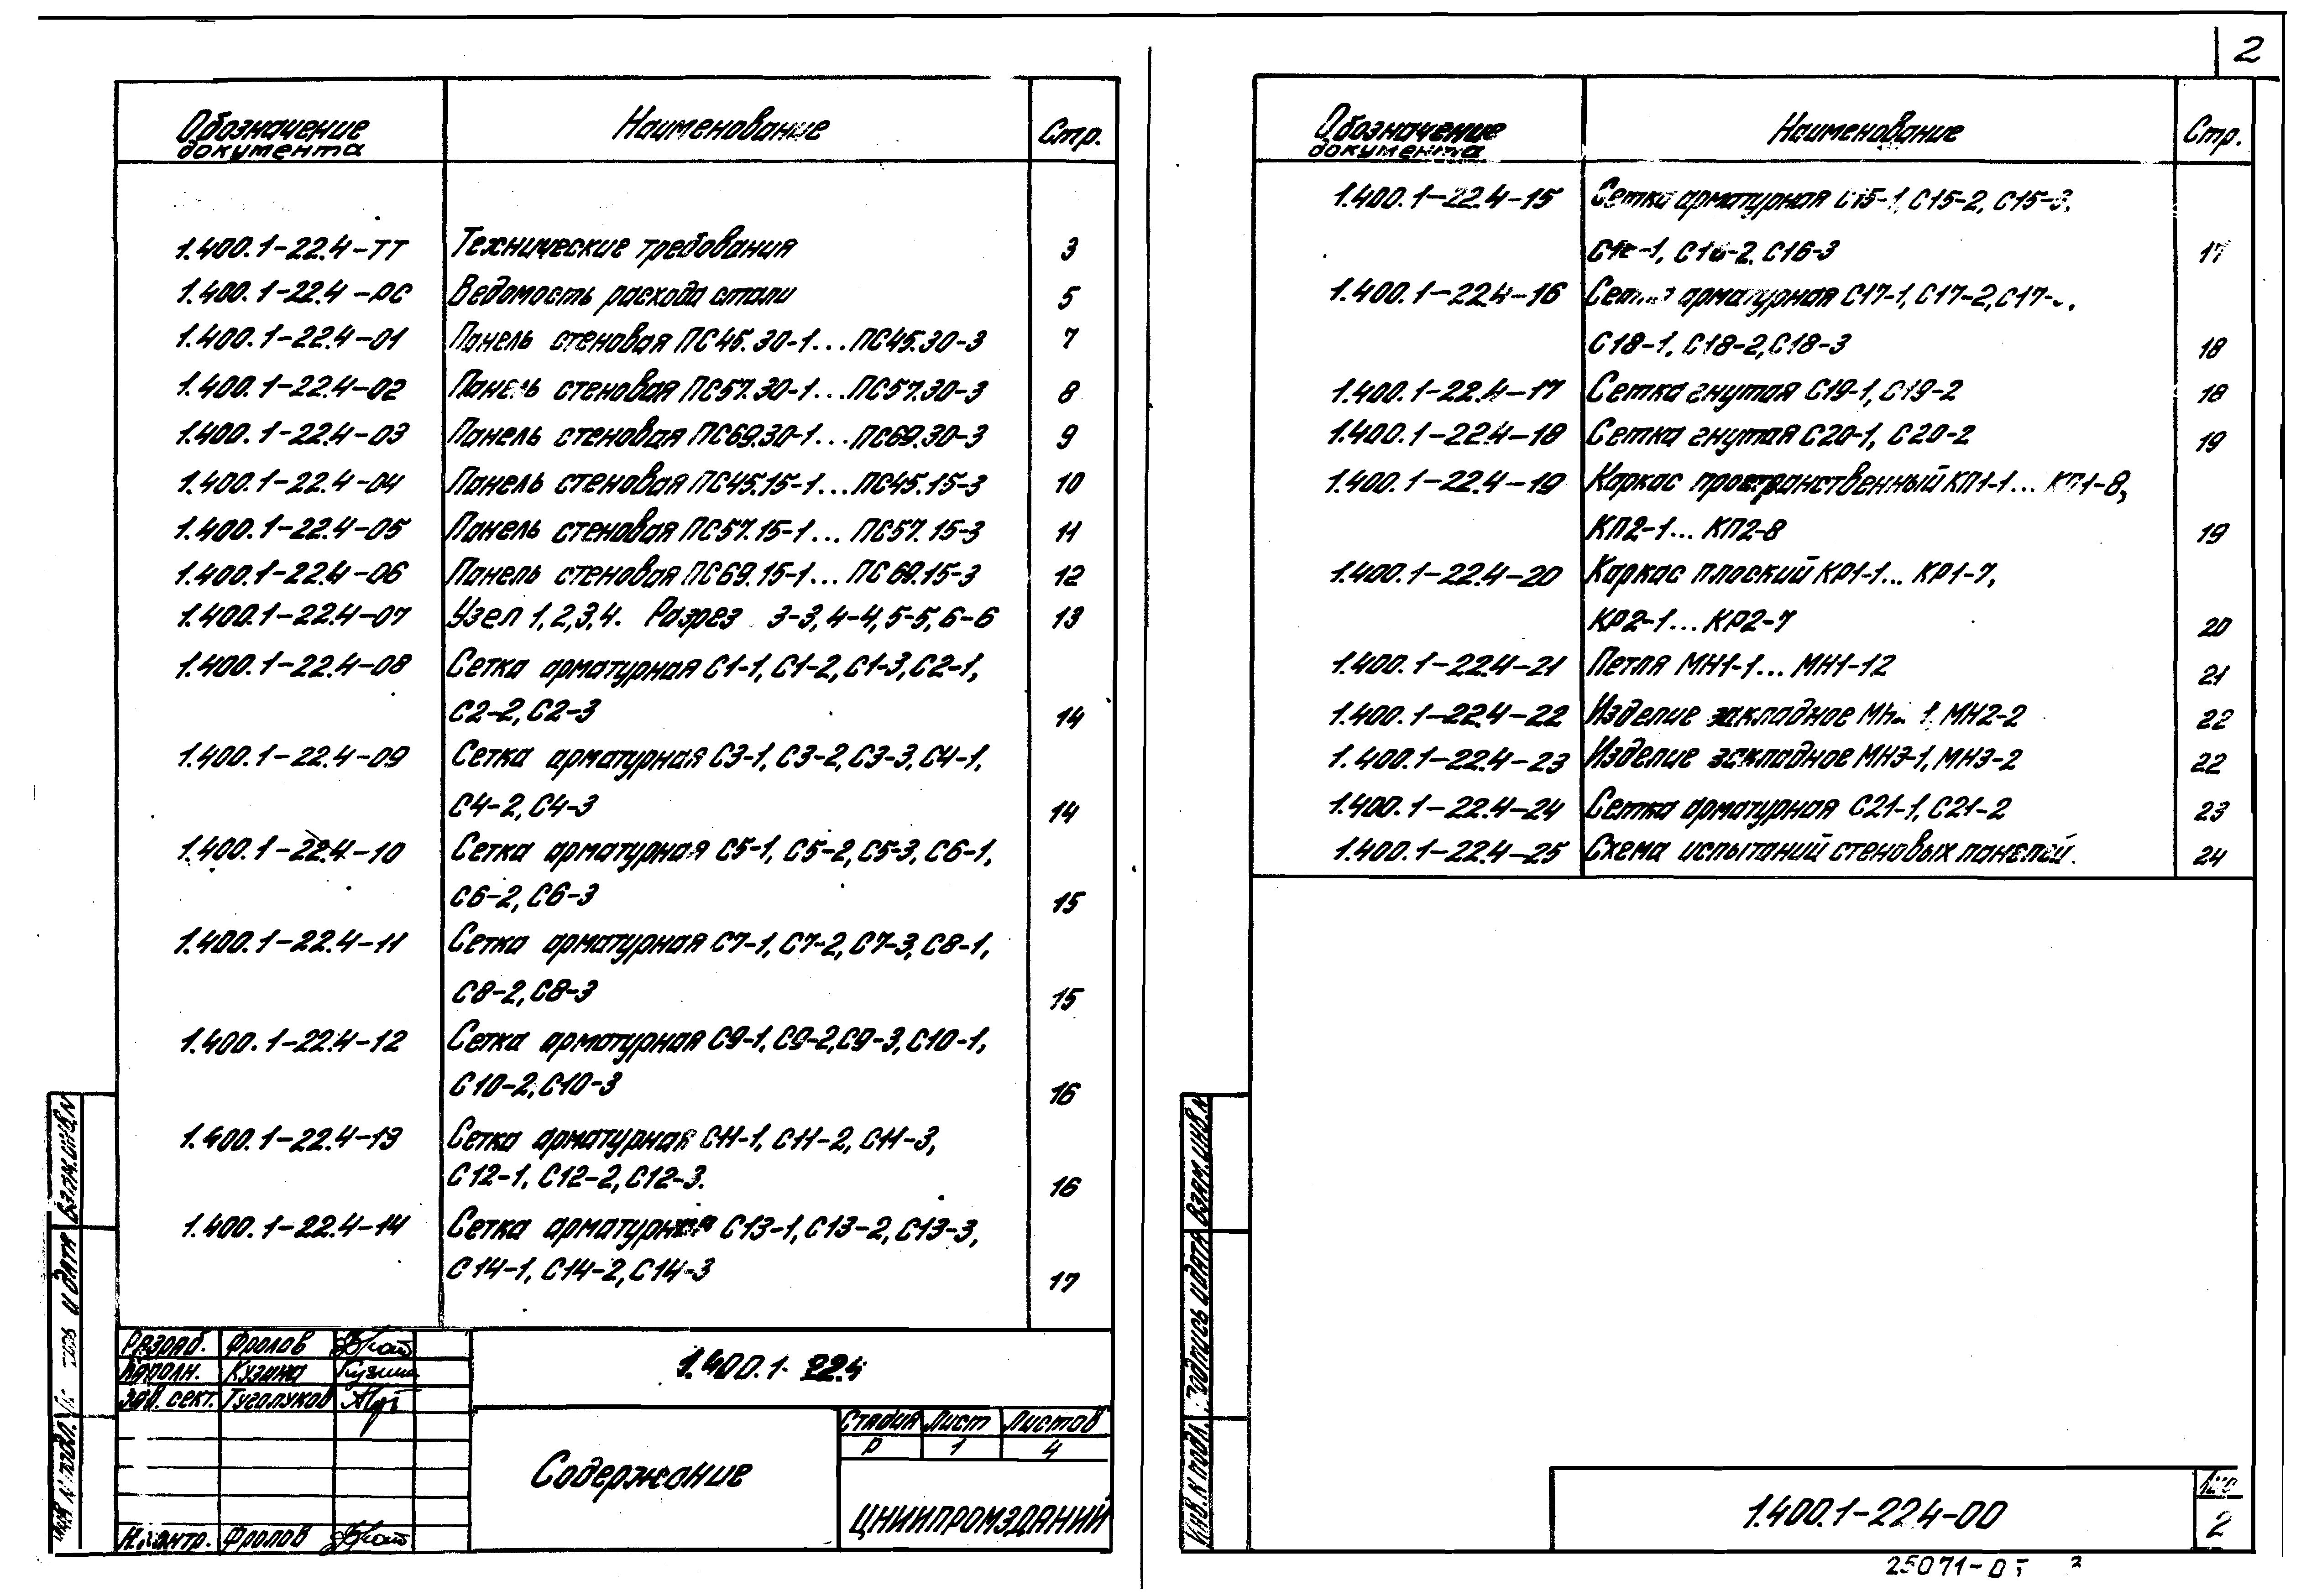 2
Обозначение документа Наименование Стр.
1.400.1-22.4-ТТ Технические требования 3
1.400.1-22.4-РС Ведомость расхода стали 5
1.400.1-22.4-01 Панель стеновая ПС45.30-1...ПС45.30-3 7
1.400.1-22.4-02 Панель стеновая ПС57.30-1...ПС57.30-3 8
1.400.1-22.4-03 Панель стеновая ПС69.30-1...ПС69.30-3 9
1.400.1-22.4-04 Панель стеновая ПС45.15-1...ПС45.15-3 10
1.400.1-22.4-05 Панель стеновая ПС57.15-1...ПС57.15-3 11
1.400.1-22.4-06 Панель стеновая ПС69.15-1...ПС69.15-3 12
1.400.1-22.4-07 Узел 1,2,3,4. Разрез 3-3, 4-4, 5-5, 6-6 13
1.400.1-22.4-08 Сетка арматурная С1-1, С1-2, С1-3, С2-1,
С2-2, С2-3 14
1.400.1-22.4-09 Сетка арматурная С3-1, С3-2, С3-3, С4-1,
С4-2, С4-3 14
1.400.1-22.4-10 Сетка арматурная С5-1, С5-2, С5-3, С6-1,
С6-2, С6-3 15
1.400.1-22.4-11 Сетка арматурная С7-1, С7-2, С7-3, С8-1,
С8-2, С8-3 15
1.400.1-22.4-12 Сетка арматурная С9-1, С9-2, С9-3, С10-1,
С10-2, С10-3 16
1.400.1-22.4-13 Сетка арматурная С11-1, С11-2, С11-3,
С12-1, С12-2, С12-3. 16
1.400.1-22.4-14 Сетка арматурная С13-1, С13-2, С13-3,
С14-1, С14-2, С14-3 17
Разраб. Фролов
Исполн. Кузина
Зав. сект. Тугалуков
Н.контр. Фролов
1.400.1-22.4
Содержание
Стадия Лист Листов
Р 1 4
ЦНИИПРОМЗДАНИЙ
Взам.инв.N
и дата
Инв.N подл.
Обозначение документа Наименование Стр.
1.400.1-22.4-15 Сетка арматурная С15-1, С15-2, С15-3,
С16-1, С16-2, С16-3 17
1.400.1-22.4-16 Сетка арматурная С17-1, С17-2, С17-
С18-1, С18-2, С18-3 18
1.400.1-22.4-17 Сетка гнутая С19-1, С19-2 18
1.400.1-22.4-18 Сетка гнутая С20-1, С20-2 19
1.400.1-22.4-19 Каркас пространственный КП1-1...КП1-8,
КП2-1...КП2-8 19
1.400.1-22.4-20 Каркас плоский КР1-1...КР1-7,
КР2-1...КР2-7 20
1.400.1-22.4-21 Петля МН1-1...МН1-12 21
1.400.1-22.4-22 Изделие закладное МН2-1, МН2-2 22
1.400.1-22.4-23 Изделие закладное МН3-1, МН3-2 22
1.400.1-22.4-24 Сетка арматурная С21-1, С21-2 23
1.400.1-22.4-25 Схема испытаний стеновых панелей. 24
Взам.инв.N
Подпись и дата
Инв.N подл.
1.400.1-22.4-00
2
25071-05 3